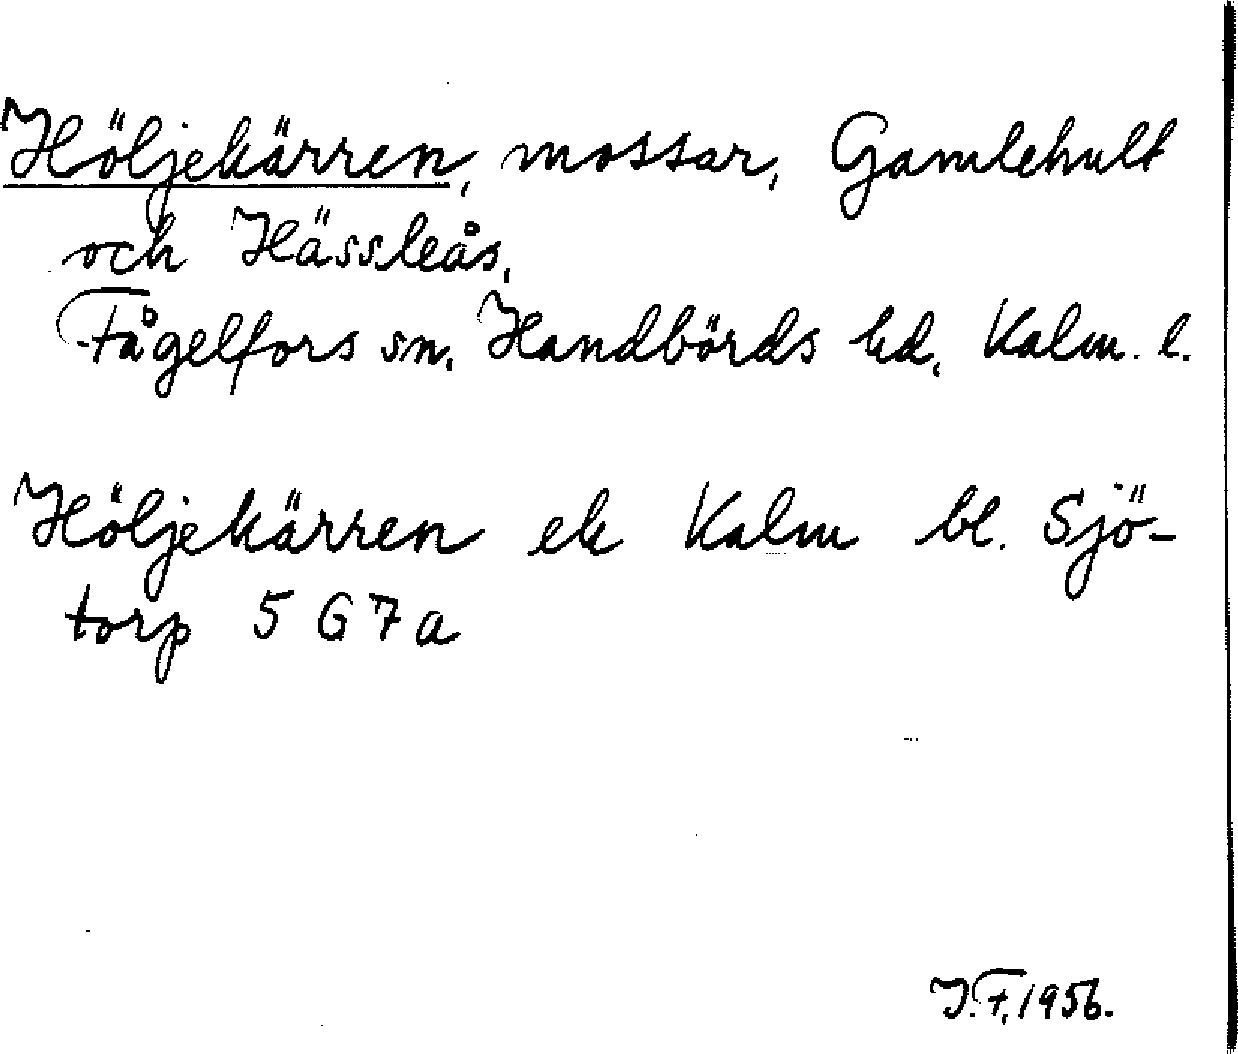 Höljekärren, mossar, Gamlehult
och Hässleås,
Fågelfors sn, Handbörds hd, Kalm. l.
Höljekärren ek Kalm bl. Sjö-
torp 5 G 7 a
J.F, 1956.